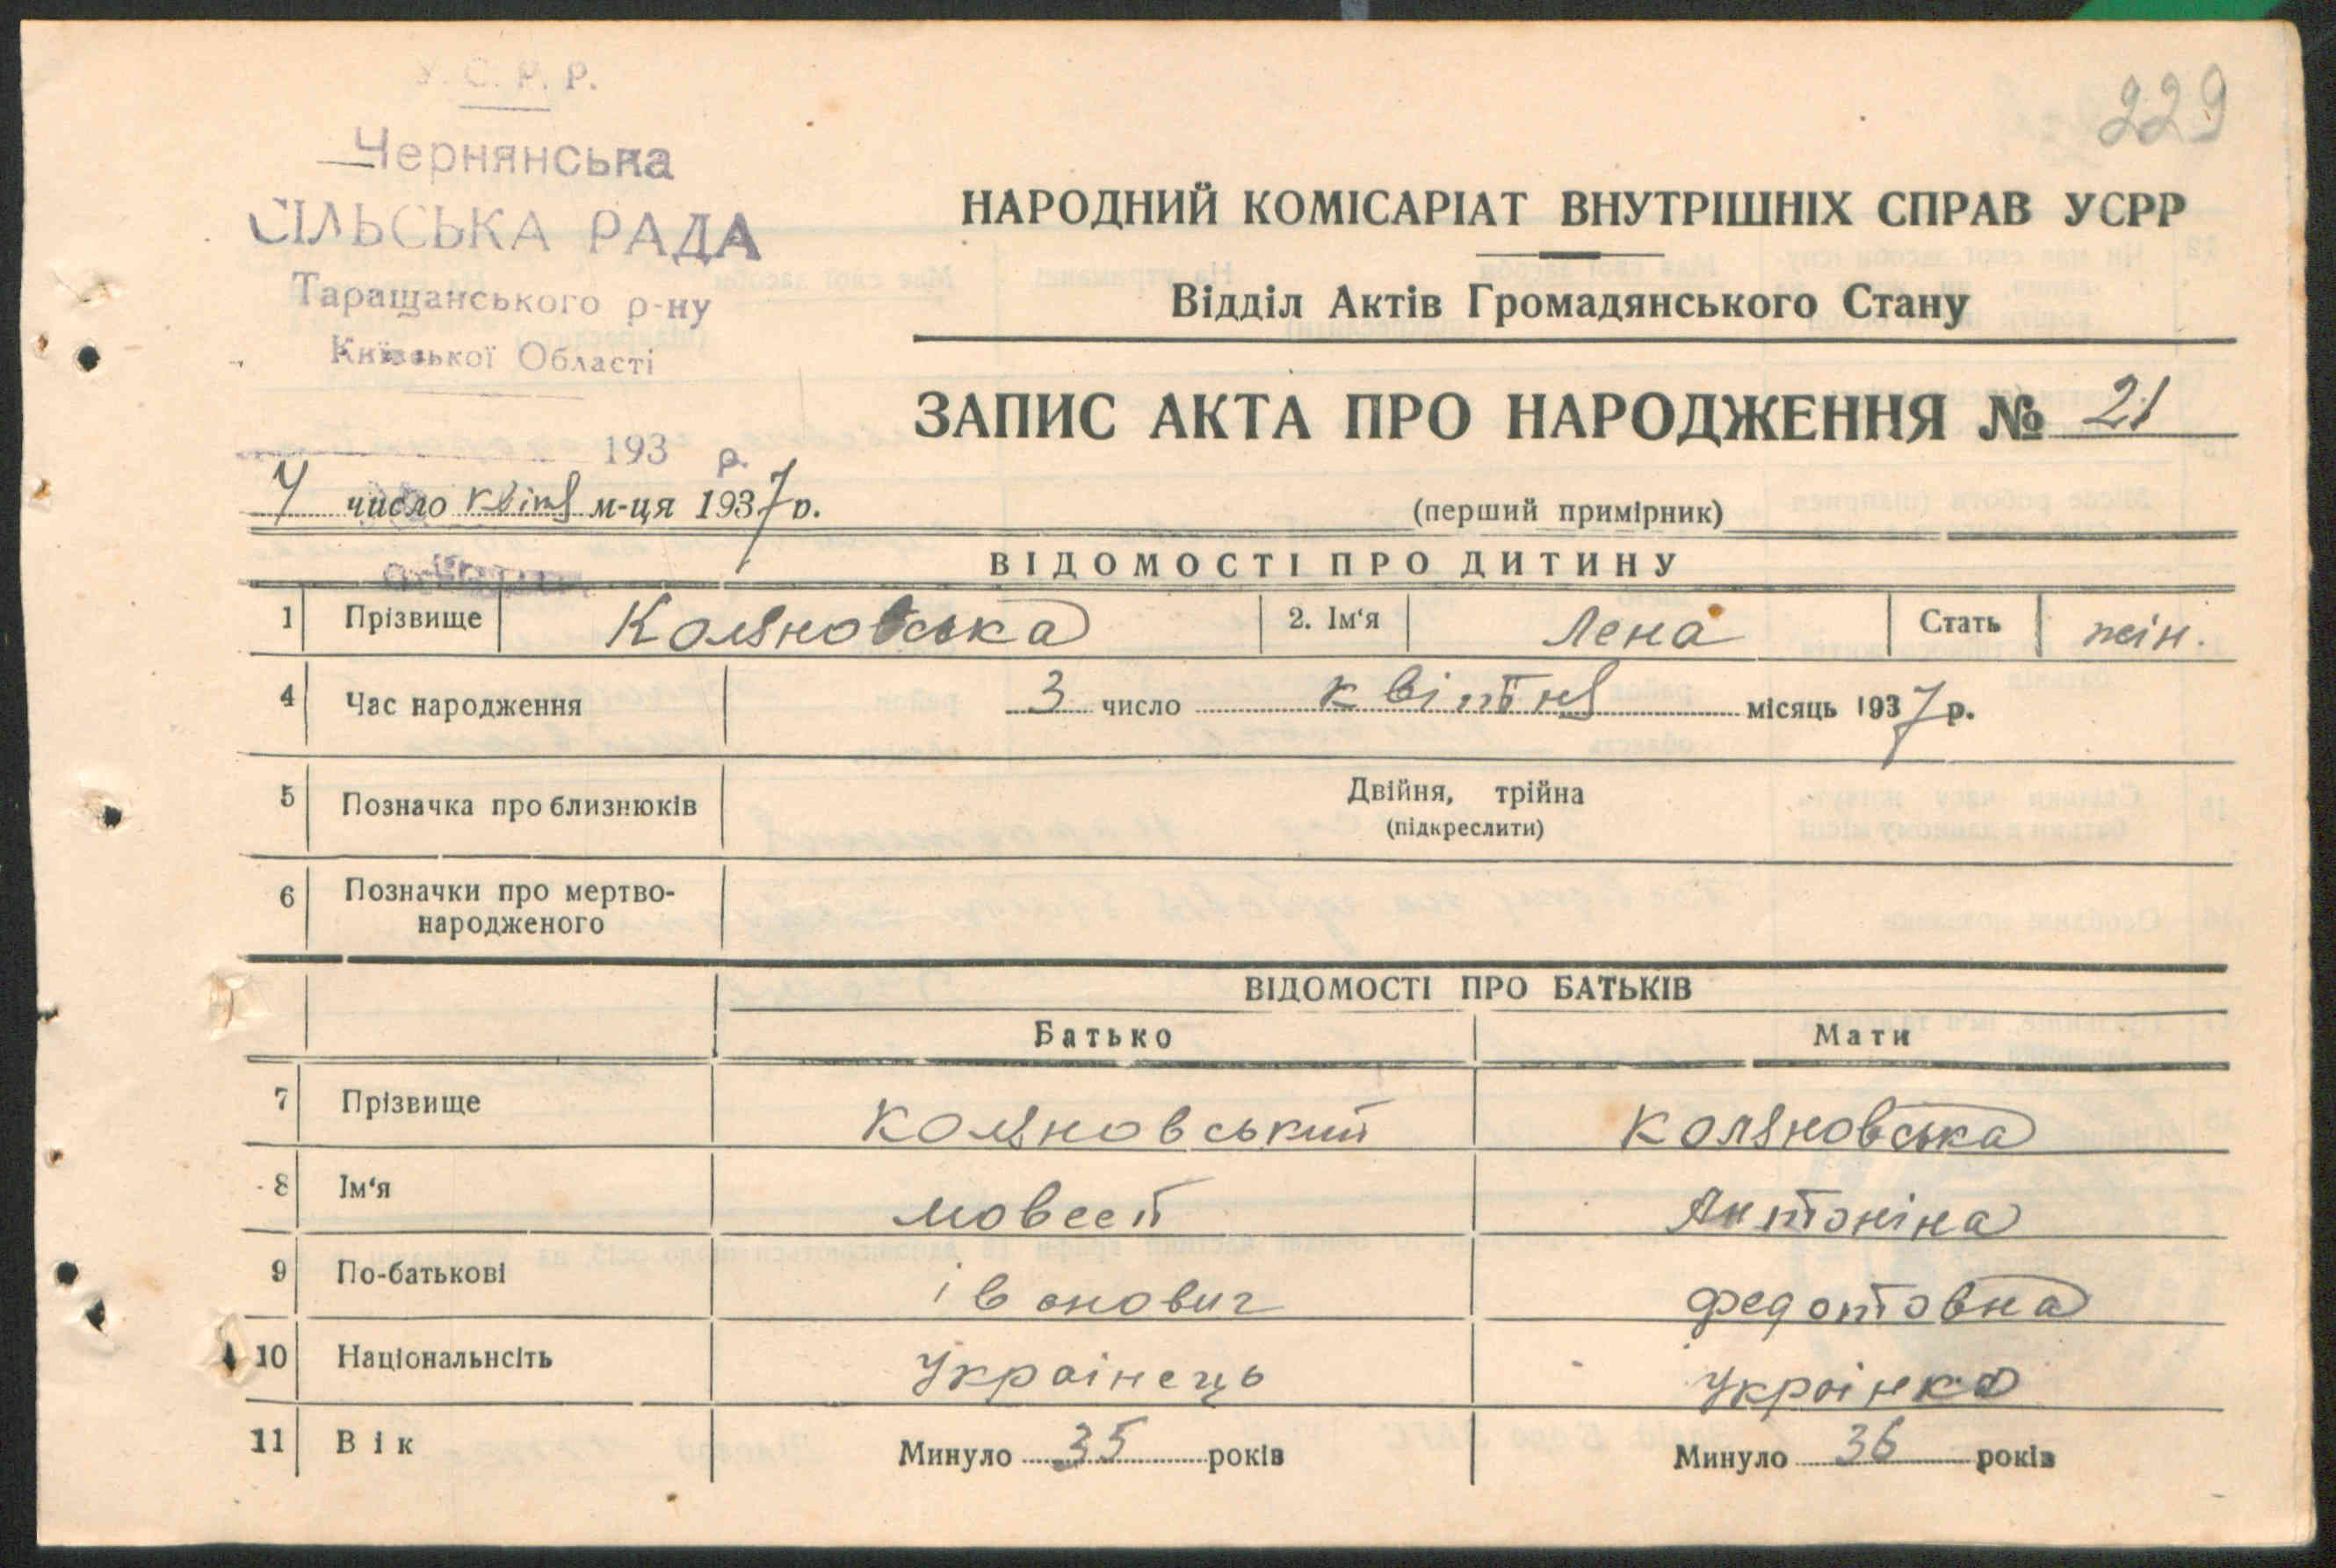 У. С. Р. Р.
229
Чернянська
СІЛЬСЬКА РАДА
Таращанського р-ну
Київської Області
193 р.
НАРОДНИЙ КОМІСАРІАТ ВНУТРІШНІХ СПРАВ УСРР
Відділ Актів Громадянського Стану
ЗАПИС АКТА ПРО НАРОДЖЕННЯ № 21
7 число квітня м-ця 1937 р.
(перший примірник)
ВІДОМОСТІ ПРО ДИТИНУ
1 Прізвище Коляновська 2. Ім‘я Лена Стать жін.
4 Час народження 3 число квітня місяць 1937 р.
5 Позначка про близнюків Двійня, трійна
(підкреслити)
6 Позначки про мертво-
народженого
ВІДОМОСТІ ПРО БАТЬКІВ
Батько Мати
7 Прізвище Коляновський Коляновська
8 Ім‘я Мовсей Антоніна
9 По-батькові іванович Федотовна
10 Національнсіть Українець Українка
11 Вік Минуло 35 років Минуло 36 років